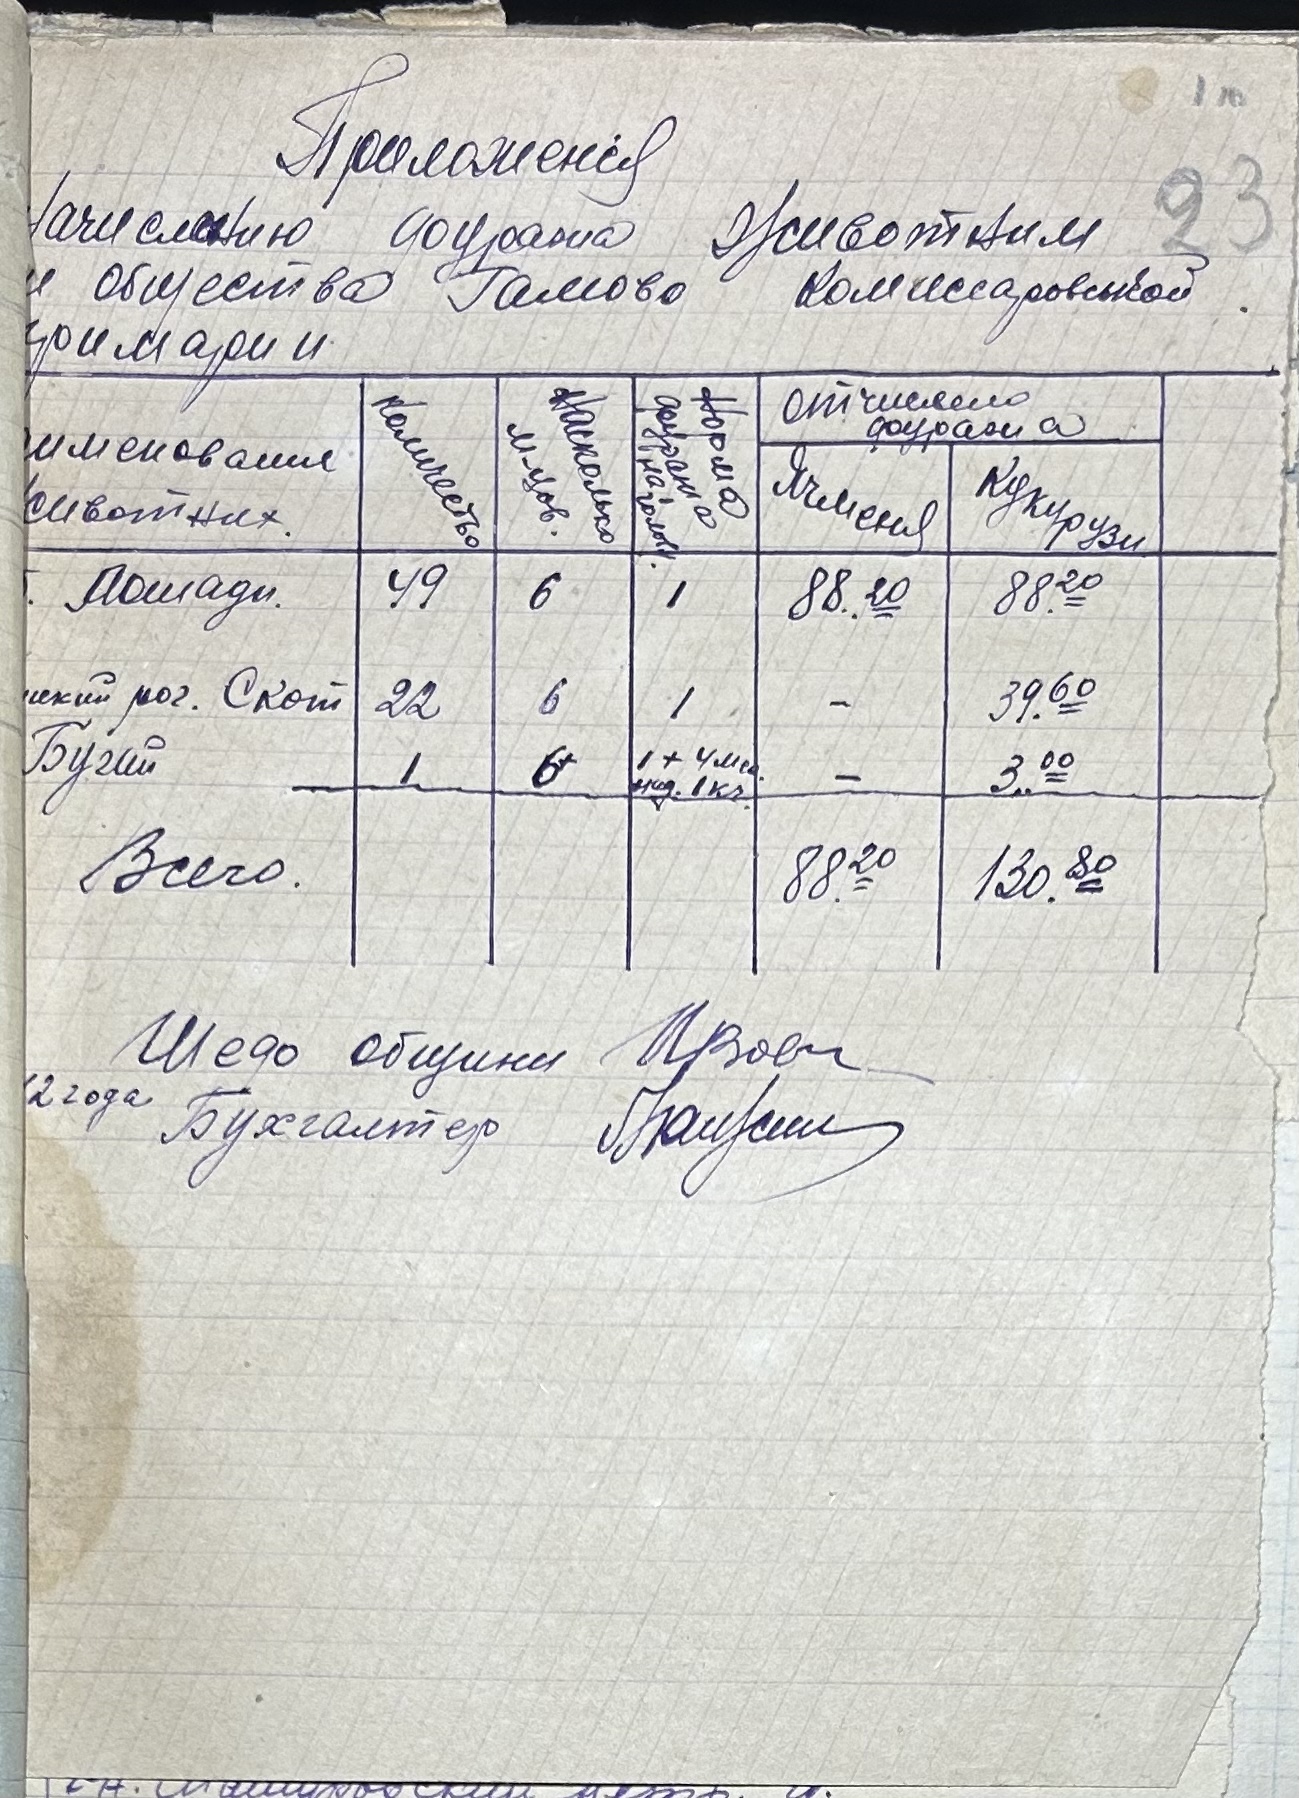 1 ю
23
Приложения
начислению фуража Животним
и общества Гамово Комиссаровской.
примарии
именования
животних.
количество
Насколько
м-цов.
Норма
фуража
на голов.
отчислено
фуража
Ячменя
Кукурузи
Лошади. 49 6 1 88.20 88.20
рог. Скот 22 6 1 - 39.60
Бугай 1 6 1 + 4 м-ц. - 3.00
над. 1 кг.
Всего. 88.20 130.80
Шефо общини
2 года
Бухгалтер